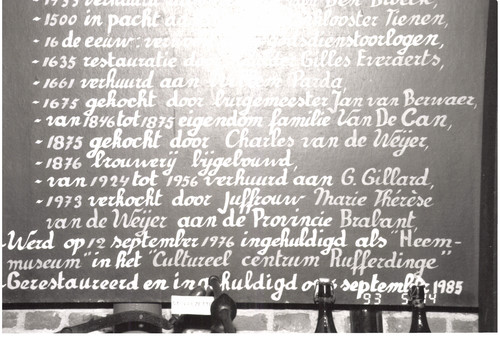 - 1500 in pacht klooster Tienen,
- 16 de eeuw: godsdienstoorlogen,
- 1635 restauratie door Gilles Everaerts,
- 1661 verhuurd aan Warda
- 1675 gekocht door burgemeester Jan van Berwaer,
- van 1846 tot 1875 eigendom familie Van De Can,
- 1875 gekocht door Charles van de Weijer,
- 1876 brouwerij bijgebouwd,
- van 1924 tot 1956 verhuurd aan G. Gillard,
- 1973 verkocht door Juffrouw Marie Thérèse
van de Weijer aan de Provincie Brabant
Werd op 12 september 1976 ingehuldigd als "Heem-
museum" in het "Cultureel centrum Rufferdinge"
Gerestaureerd en ingehuldigd september 1985
93 5 14